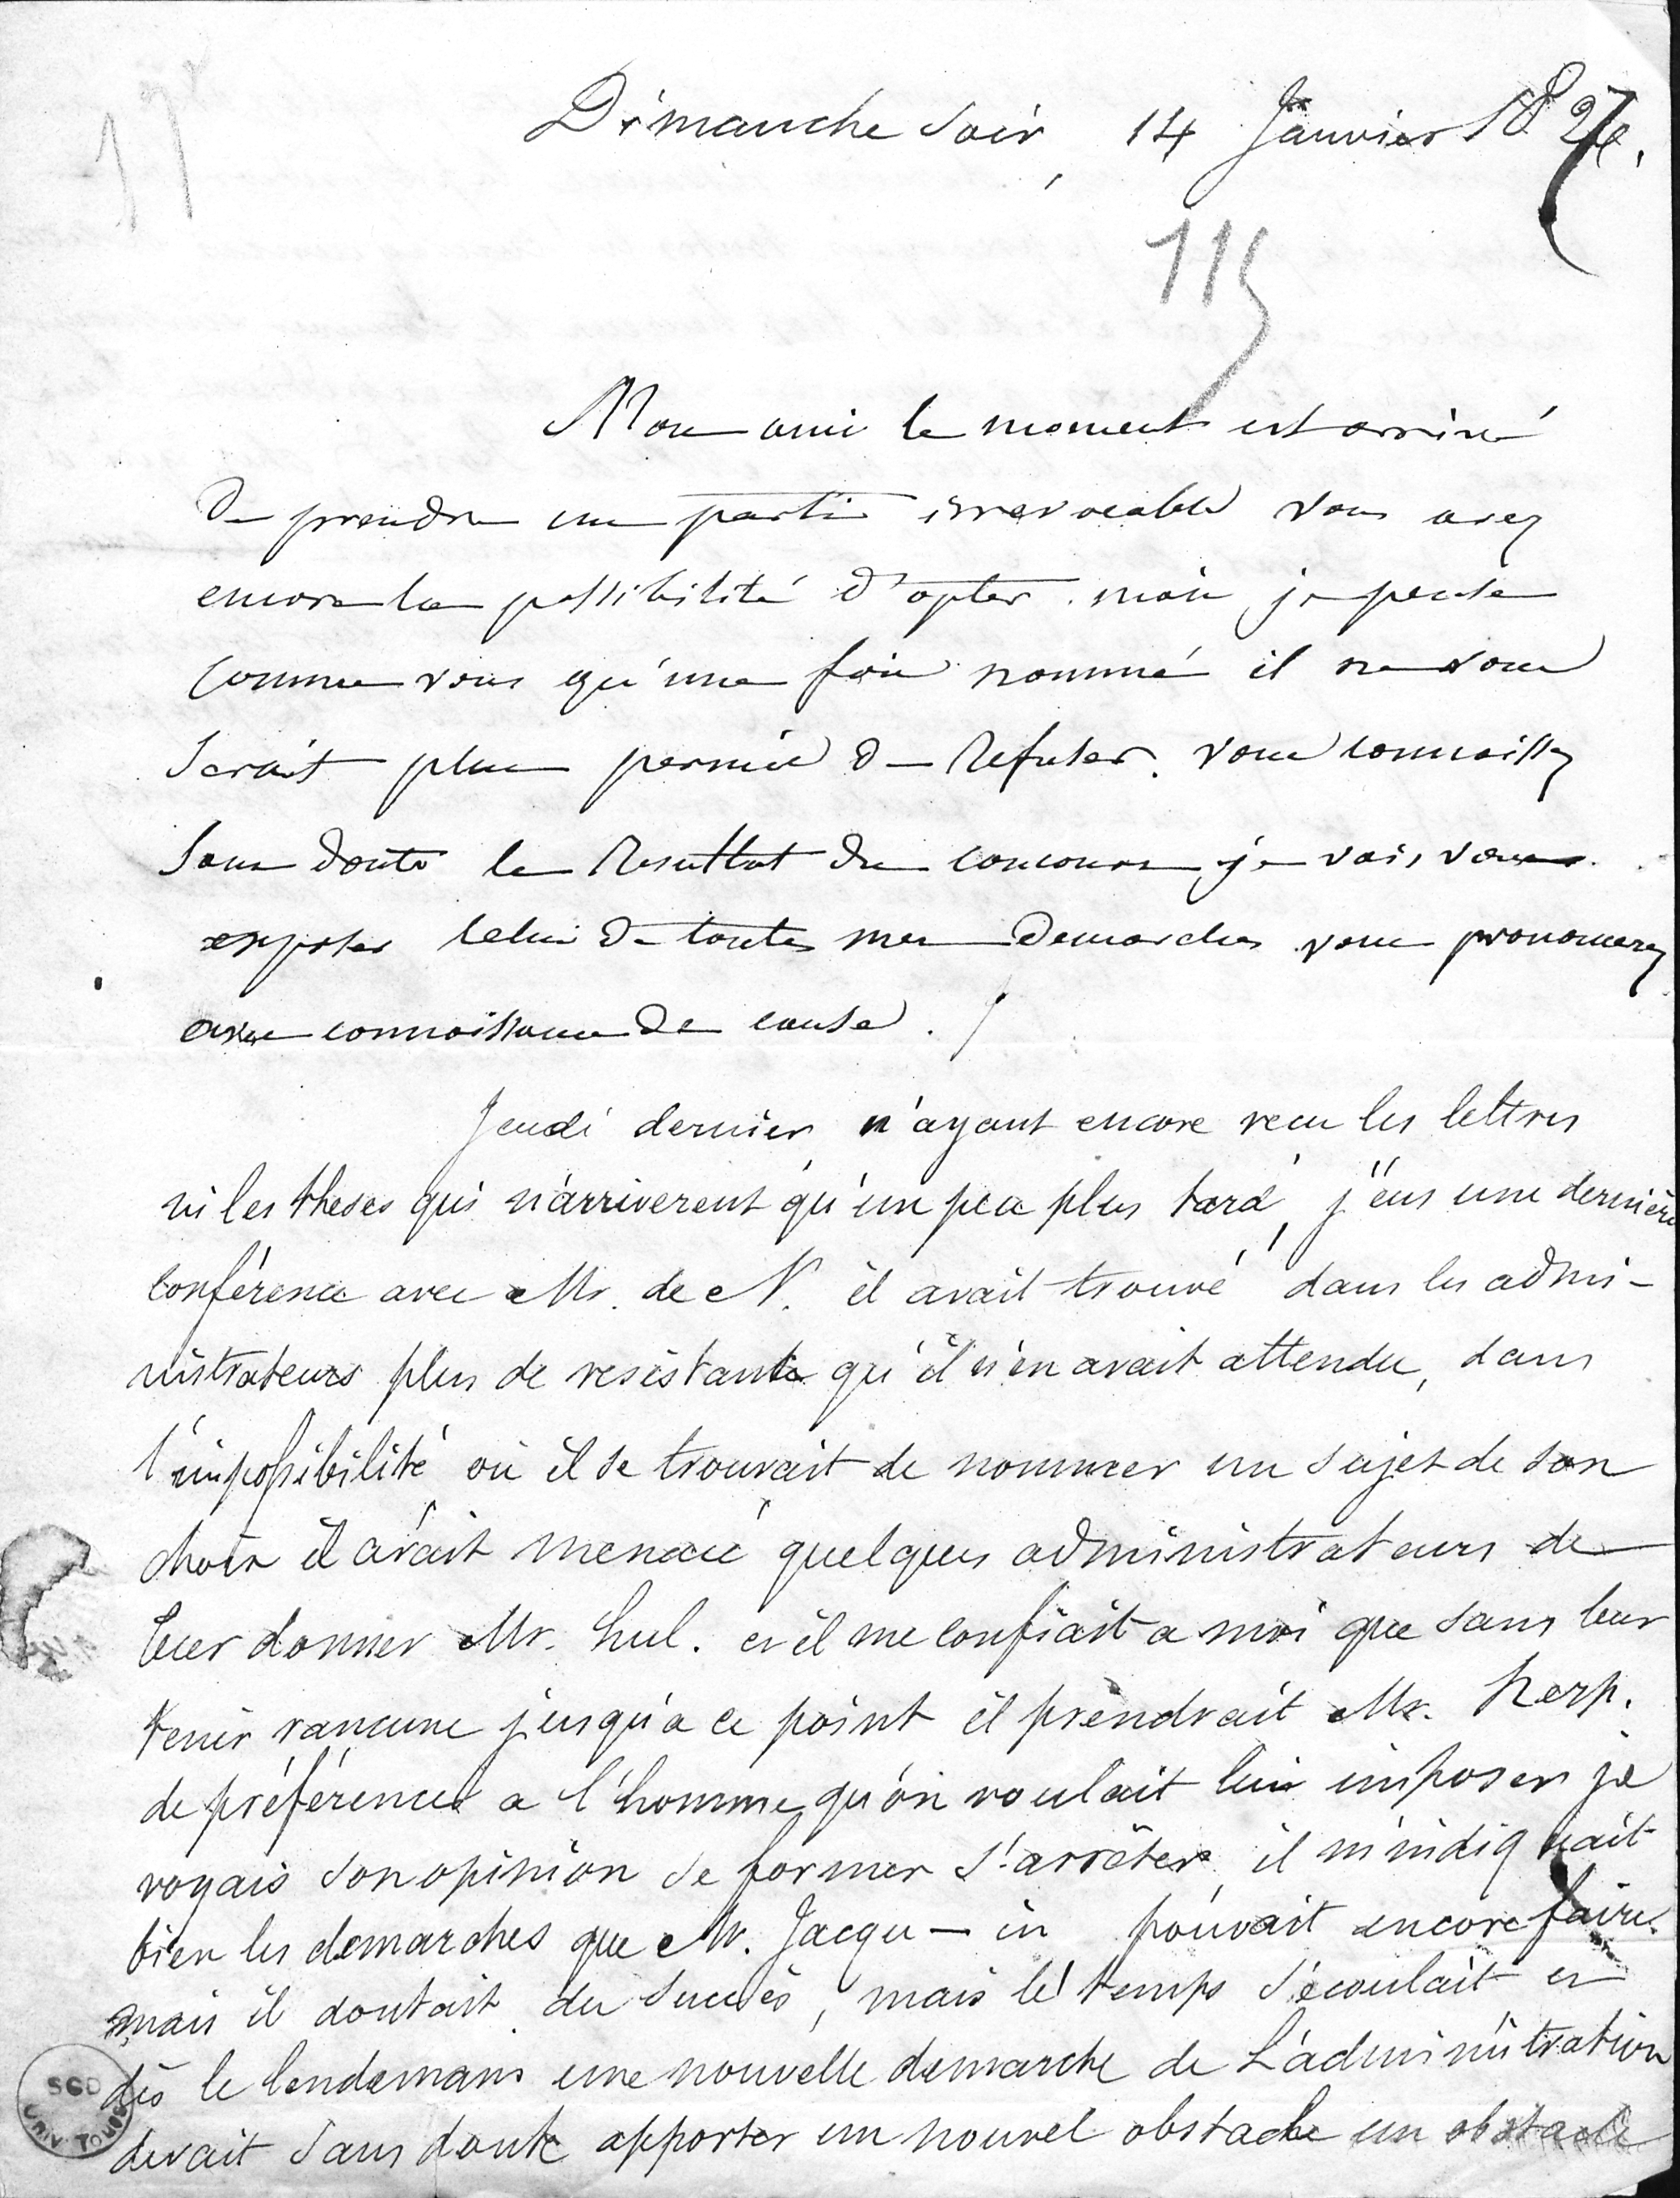 17
Dimanche soir, 14 Janvier 1827.
115
Mon ami le moment est arrivé
De prendre un parti irrevocable vous avez
encore la possibilité d'opter. mais je pense
comme vous qu'une fois nommé il ne vous
serait plus permis de refuser. vous connaissez
sans doute le resultat du concours je vais vous
exposer celui de toutes mes demarches vous prononcerez
avec connaissance de cause.
Jeudi dernier n'ayant encore recu les lettres
ni les theses qui n'arriverent qu'un peu plus tard, j'eus une dernière
conférence avec Mr. de N. il avait trouvé dans les admi-
nistrateurs plus de resistante qu'il n'en avait attendu, dans
l'impossibilité où il se trouvait de nommer un sujet de son
choix il avait menacé quelques administrateurs de
leur donner Mr. hul. et il me confiait a moi que sans leur
tenir rancune jusqu'a ce point il prendrait Mr. herp.
de préférence a l'homme qu'on voulait lui imposer je
voyais son opinion se former s'arrêter, il m'indiquait
bien les demarches que Mr. Jacqu — in pouvait encore faire
mais il doutait du succès, mais le temps s'écoulait et
dès le lendemain une nouvelle demarche de L'administration
devait sans doute apporter un nouvel obstacle un obstacle
SCD
Univ. Tours